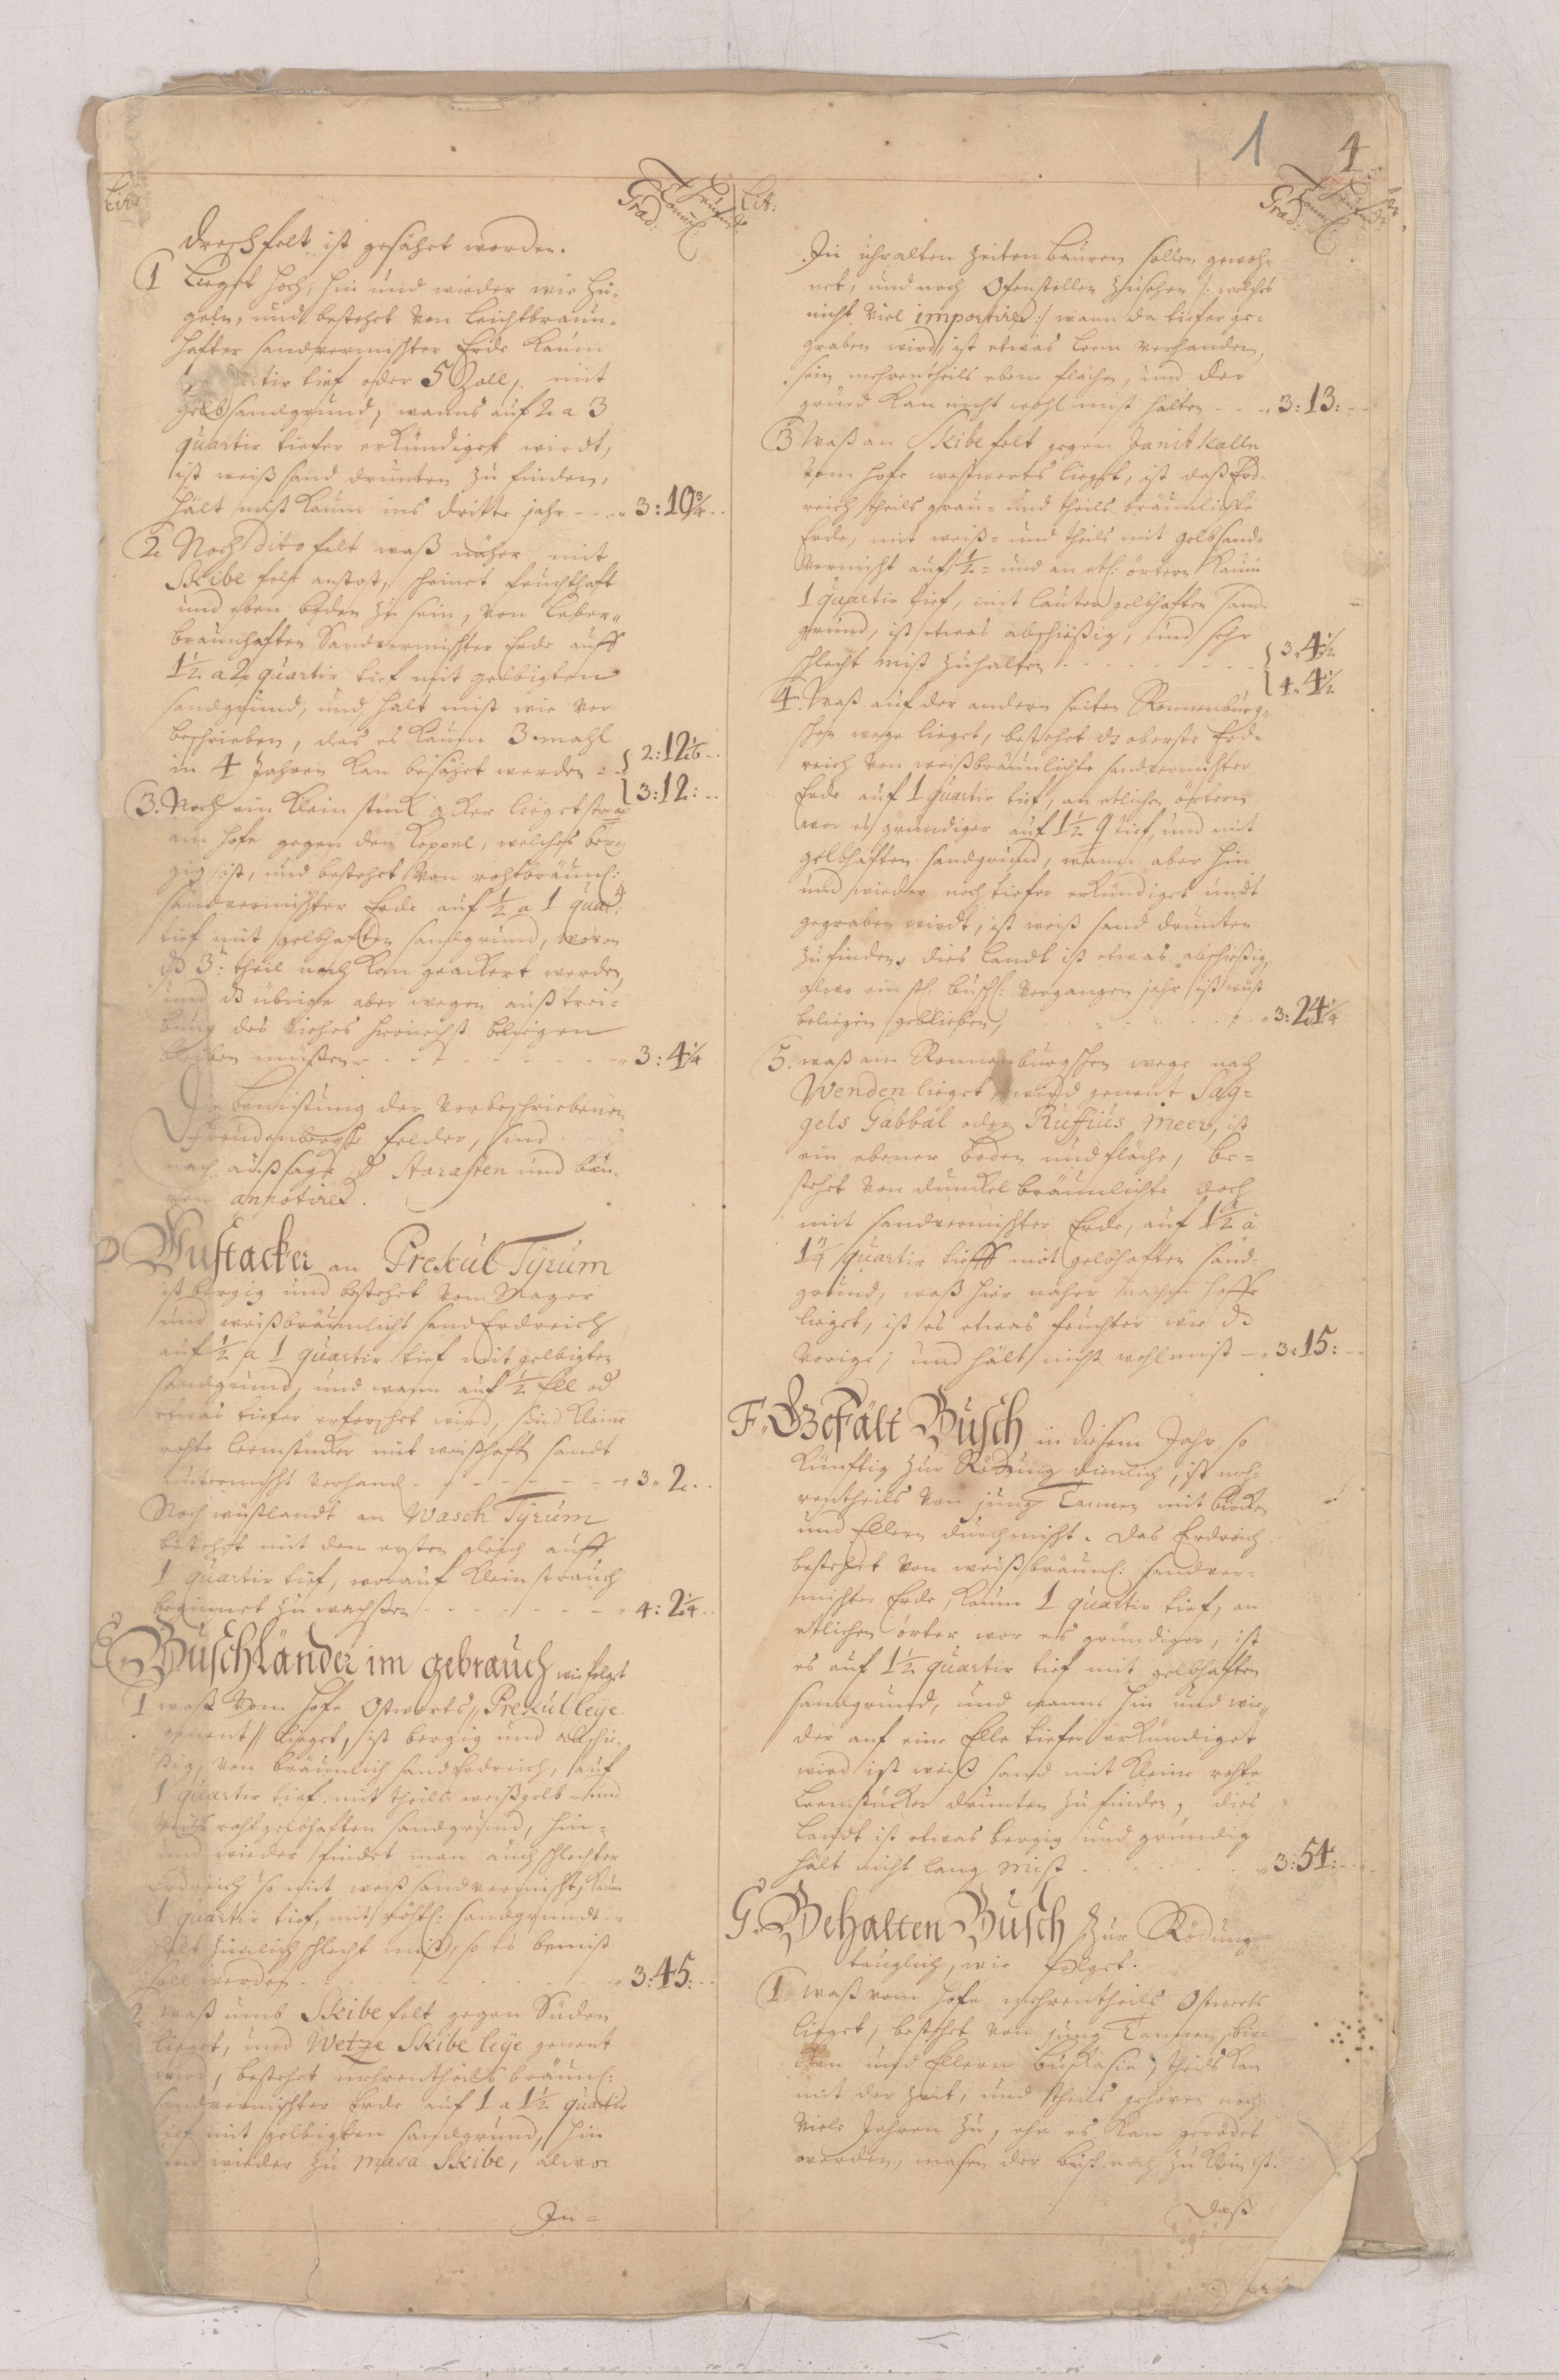 1
1
Lit:
Grad: Tonnel: Taufend:
Lit:
Grad: Tonnel:
dreschfelt ist gesähet worden.
1 Liegt hoch, hin und wieder wie Hü-
geln, und bestehet von leichtbraun-
hafter sandvermischter Erde kaum
tir tief oder 5 Zoll, mit
gelbsandgrund, wanns auf 2 a 3
quartir tiefer erkündiget wirdt,
ist weiß sand drunten zu finden,
hält mist kaum ins dritte jahr - - - 3:10¾
2 Noch dito felt waß näher mit
Skibe felt anstost, scheinet feuchthaft
und eben boden zu sein, von leber-
braunhaften Sandvermischter Erde auff
1½ a 2 quartir tief mit gelbigten
sandgrund, und halt mist wie vor
beschrieben, das es kaum 3 mahl
in 4 Jahren kan besähet werden - { 2:12⅙
3:12:
3. Noch ein klein stück acker lieget
am hofe gegen den Koppel, welches ber-
gig ist, und bestehet von rohtbräunl:
sandvermischter Erde auf ½ a 1 quar:
tief mit gelbhaften sandgrund, wovon
3: theil noch kan geackert werden,
und übrige aber wegen außtrei-
bung des viehes hronechst beliegen
bleiben müßen - - - - - - 3:4¼
Die bemistung der vorbeschriebenen
Freudenbergsche felder, sind
nach außsage Starasten und bau-
ren annotiret.
D Wustacker an Prekul Tyrum
ist bergig und bestehet vom Mager
und weißbräunlicht sand Erdreich
auf ½ a 1 quartir tief mit gelbigten
sandgrund, und wann auf ½ Ell od
etwas tiefer erforschet wird, sind kleine
rohte leemstücker mit weißhaft sandt
untermischt verhand - - - - - 3. 2.
Noch wüstlandt an Wasch Tyrum
bestehet mit dem ersten gleich auff
1 quartir tief, worauf klein strauch
beginnet zu wachßen - - - - 4:2¼
E Buschländer im gebrauch wie folget
1 waß vom hofe Ostwerts Prekulleije
genent lieget, ist bergig und abschie-
ßig, von bräunlich sand Erdreich, auf
1 quartir tief, mit theils weißgelb- und
theils roht gelbhaften sandgrund, hin-
und wieder findet man auch schlechter
Erdreich so mit weiß sandvermischt, kaum
1 quartir tief, mit röhtl: sandgrundt
halt zimlich schlecht mist, so es bemist
soll werden - - - - - 3:45:
2 waß umb Skibe felt gegen Süden
lieget, und Wetze Skibe leije genent
wird, bestehet mehrentheils bräunl:
sandvermischter Erde auf 1 a 1½ quartir
tief mit gelbigten sandgrund, hin
und wieder zu masa Skibe, alwo
In=
In uhralten Zeiten bauren sollen gewoh-
net, und noch Ofenstellen zusehen /: welches
nicht viel importiret :/ wann da tiefer ge-
graben wird, ist etwas leem verhanden,
sein mehrentheils ebene fläche, und der
grund kan nicht wohl mist halten - - 3:13:
3 Waß an Skibe felt gegen Janit kalln
vom hofe westwerts lieget, ist daß Erd-
reich theils grau- und theils bräunlichte
Erde, mit weiß- und theils mit gelbsand-
vermischt auf ½- und an etl: örtern kaum
1 quartir tief, mit lauter gelbhaften Sand-
grund, ist etwas abschießig, und sehr
schlecht mist zuhalten - - - - - { 3. 4½
4. 4½
4. Waß auf der andern seiten Ronnenburg-
schen wege lieget, bestehet oberste Erd-
reich von weißbräunlichte sandvermischter
Erde auf 1 quartir tief, an etlichen örtern
wor es gründiger auf 1½ q tief, und mit
gelbhaften sandgrund, wann aber hin
und wieder noch tiefer erkündiget undt
gegraben wirdt, ist weiß sand drunten
zufinden, dies landt ist etwas abschießig,
alwo ein stl: busch: vergangen jahr ist wüst
beliegen geblieben, - - - 3:24¼
5. waß am Ronnenburgschen wege nach
Wenden lieget, wird genent Sag-
gels Gabbal oder Ruffius Meer, ist
ein ebener boden und fläche, be-
stehet von dunkel bräunlichte doch
mit sandvermischter Erde, auf 1½ à
1¾ quartir tieff mit gelbhaften sand
grund, waß hier näher nachm hoffe
lieget, ist es etwas feuchter wie
vorige; und hält nicht wohl mist - 3:15:
F. Gefält Busch in diesem Jahr so
künftig zur Rödung dienlich, ist meh-
rentheils von jung Tannen mit bircken
und Ellern durchmischt. Das Erdreich
bestehet von weißbräunl: sandver-
mischter Erde, kaum 1 quartir tief, an
etlichen örter wor es gründiger, ist
es auf 1½ quartir tief mit gelbhaften
sandgrund, und wanns hin und wie-
der auf eine Elle tiefer erkündiget
wird ist weiß sand mit kleine rohte
leemstücker drunten zu finden, dies
landt ist etwas bergig und gründig
hält nicht lang mist - - - - 3:54:
G. Behalten Busch zur Rödung
tauglich, wie folget.
1. waß vom hofe mehrentheils Ostwerts
lieget, bestehet von jung Tannen, bir-
cken und Ellern buskasie, theils kan
mit der Zeit, und theils gehören noch
viele Jahren zu, ehe es kan gerödet
werden, maßen der busch noch zu klein ist.
Daß